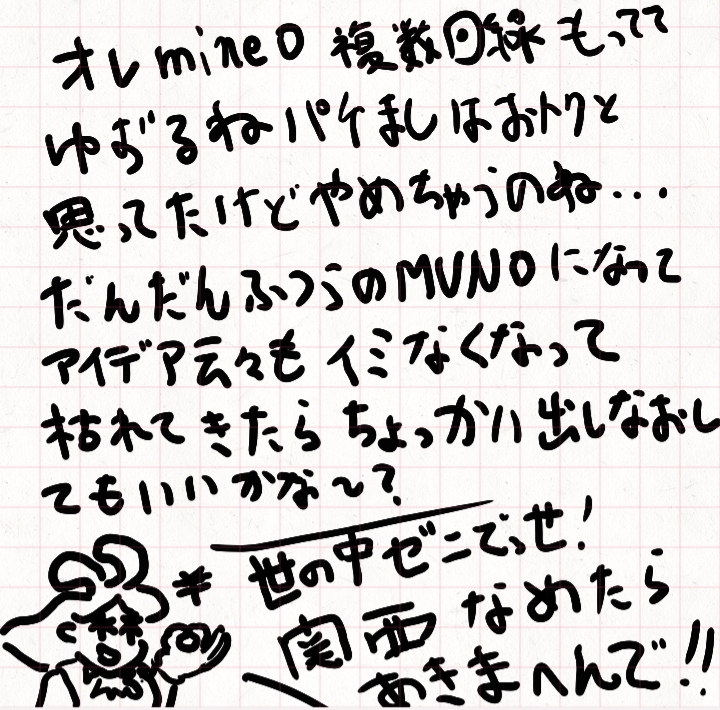 オレmineo 複数回線もってて
ゆずるねパケましはおトクと
思ってたけどやめちゃうのね...
だんだんふつうのMVNOになって
アイデア云々もイミなくなって
枯れてきたらちょっかい出しなおし
てもいいかな〜?
世の中ゼニでっせ!
¥
関西なめたら
あきまへんで!!